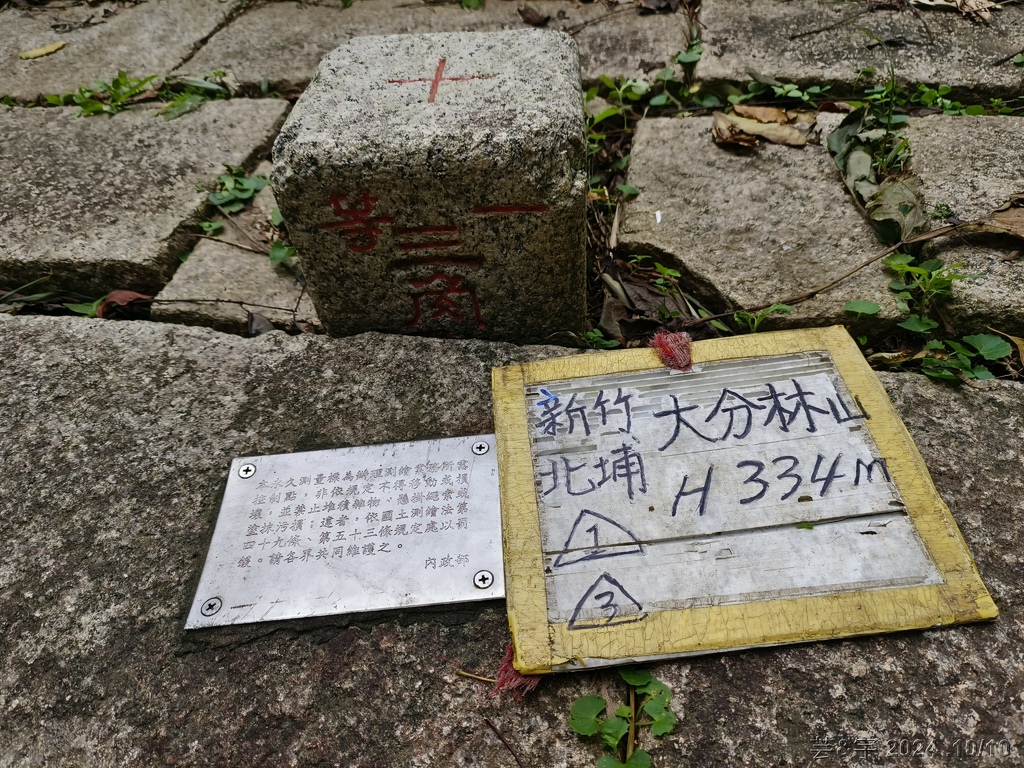 十
一等
三角
本永久測量標為辦理測繪業務所需
控制點，非依規定不得移動或損
壞，並禁止堆積雜物、懸掛繩索或
塗抹污損；違者，依國土測繪法第
四十九條、第五十三條規定處以罰
鍰。請各界共同維護之。
內政部
新竹 大分林山
北埔 H 334m
1
3
2024 10/10